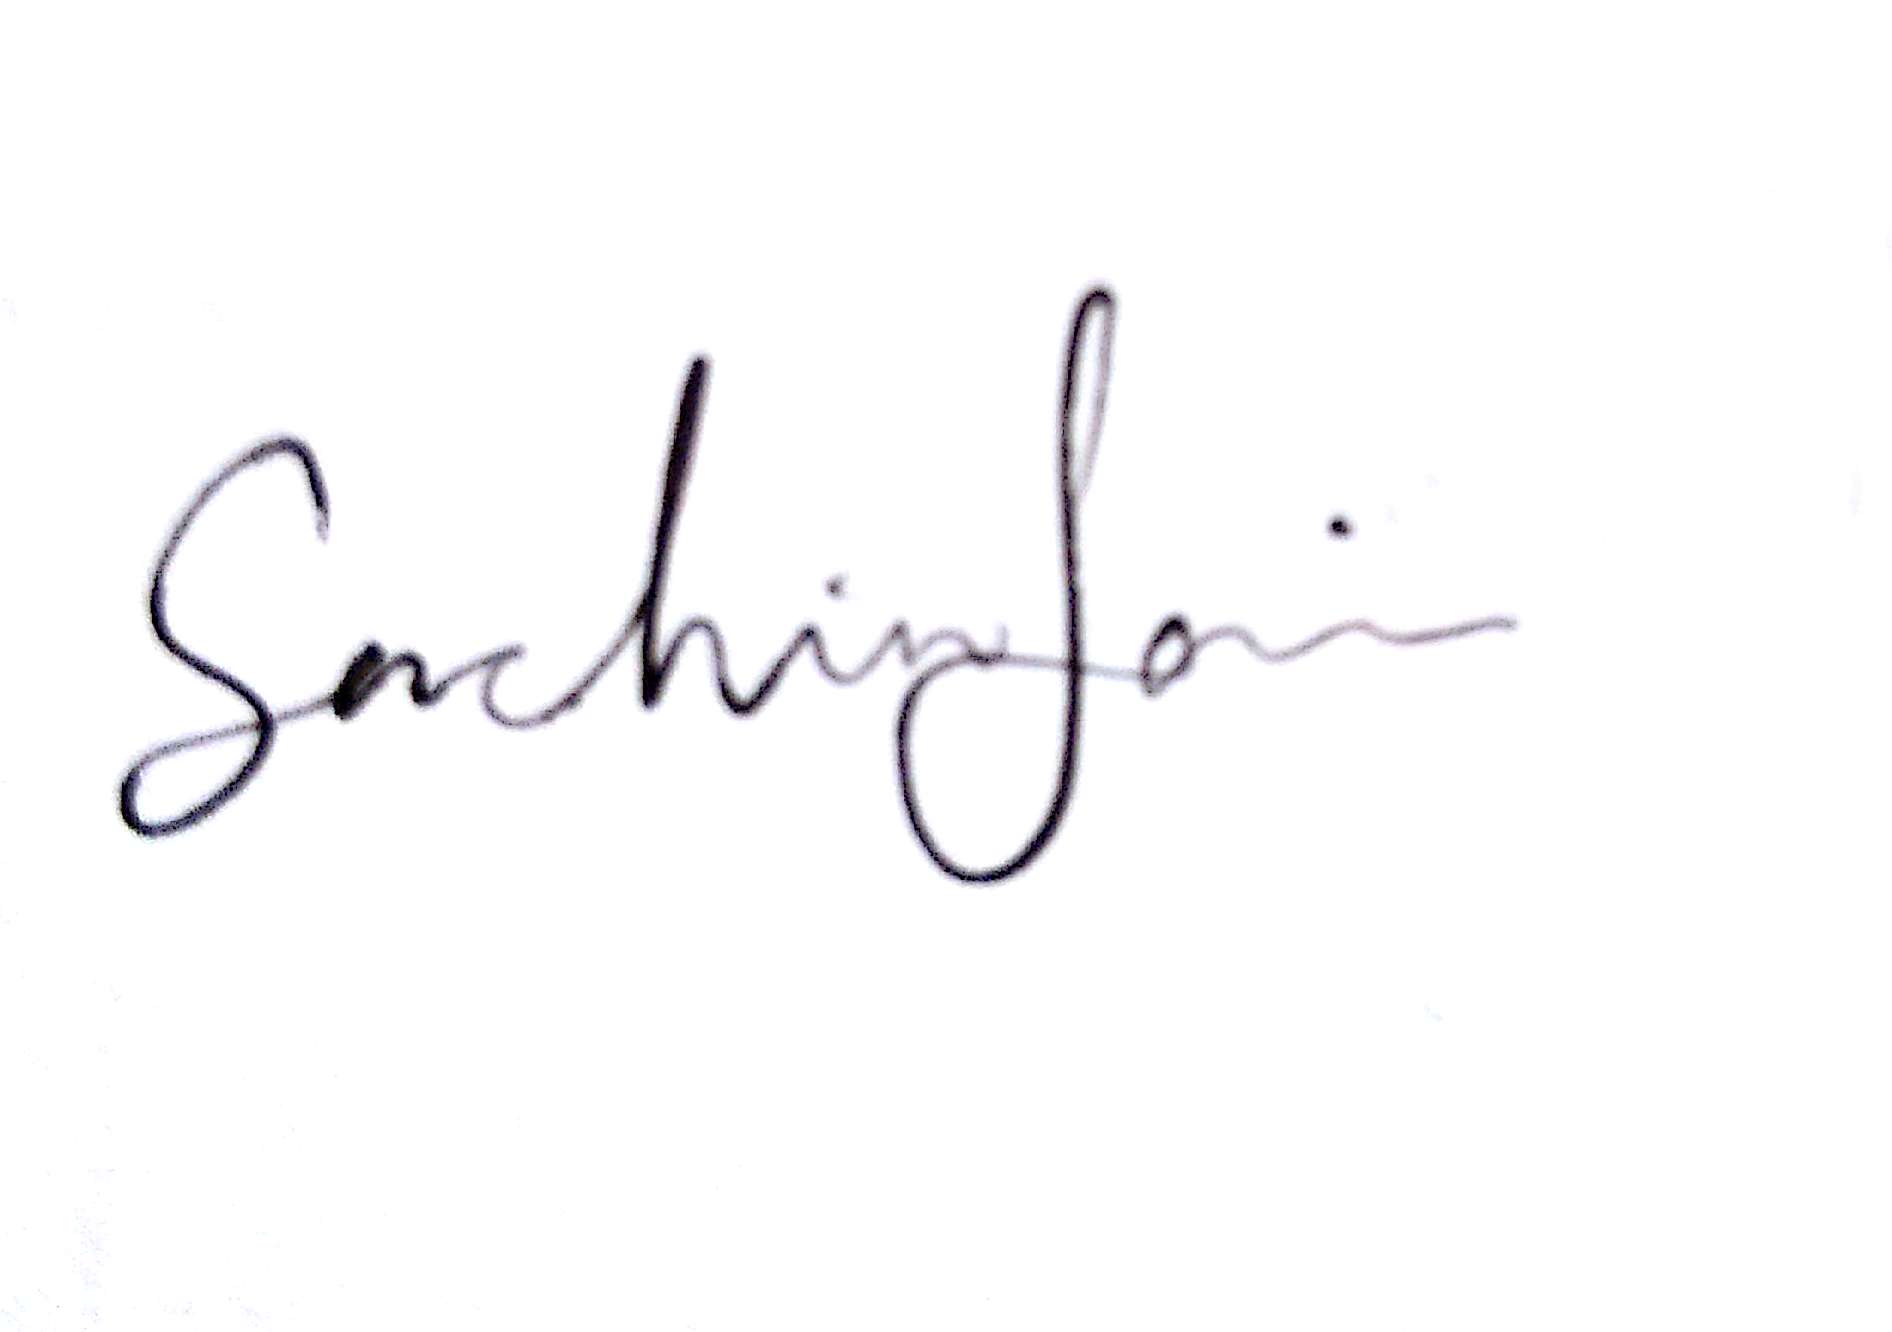 Sachin Jain